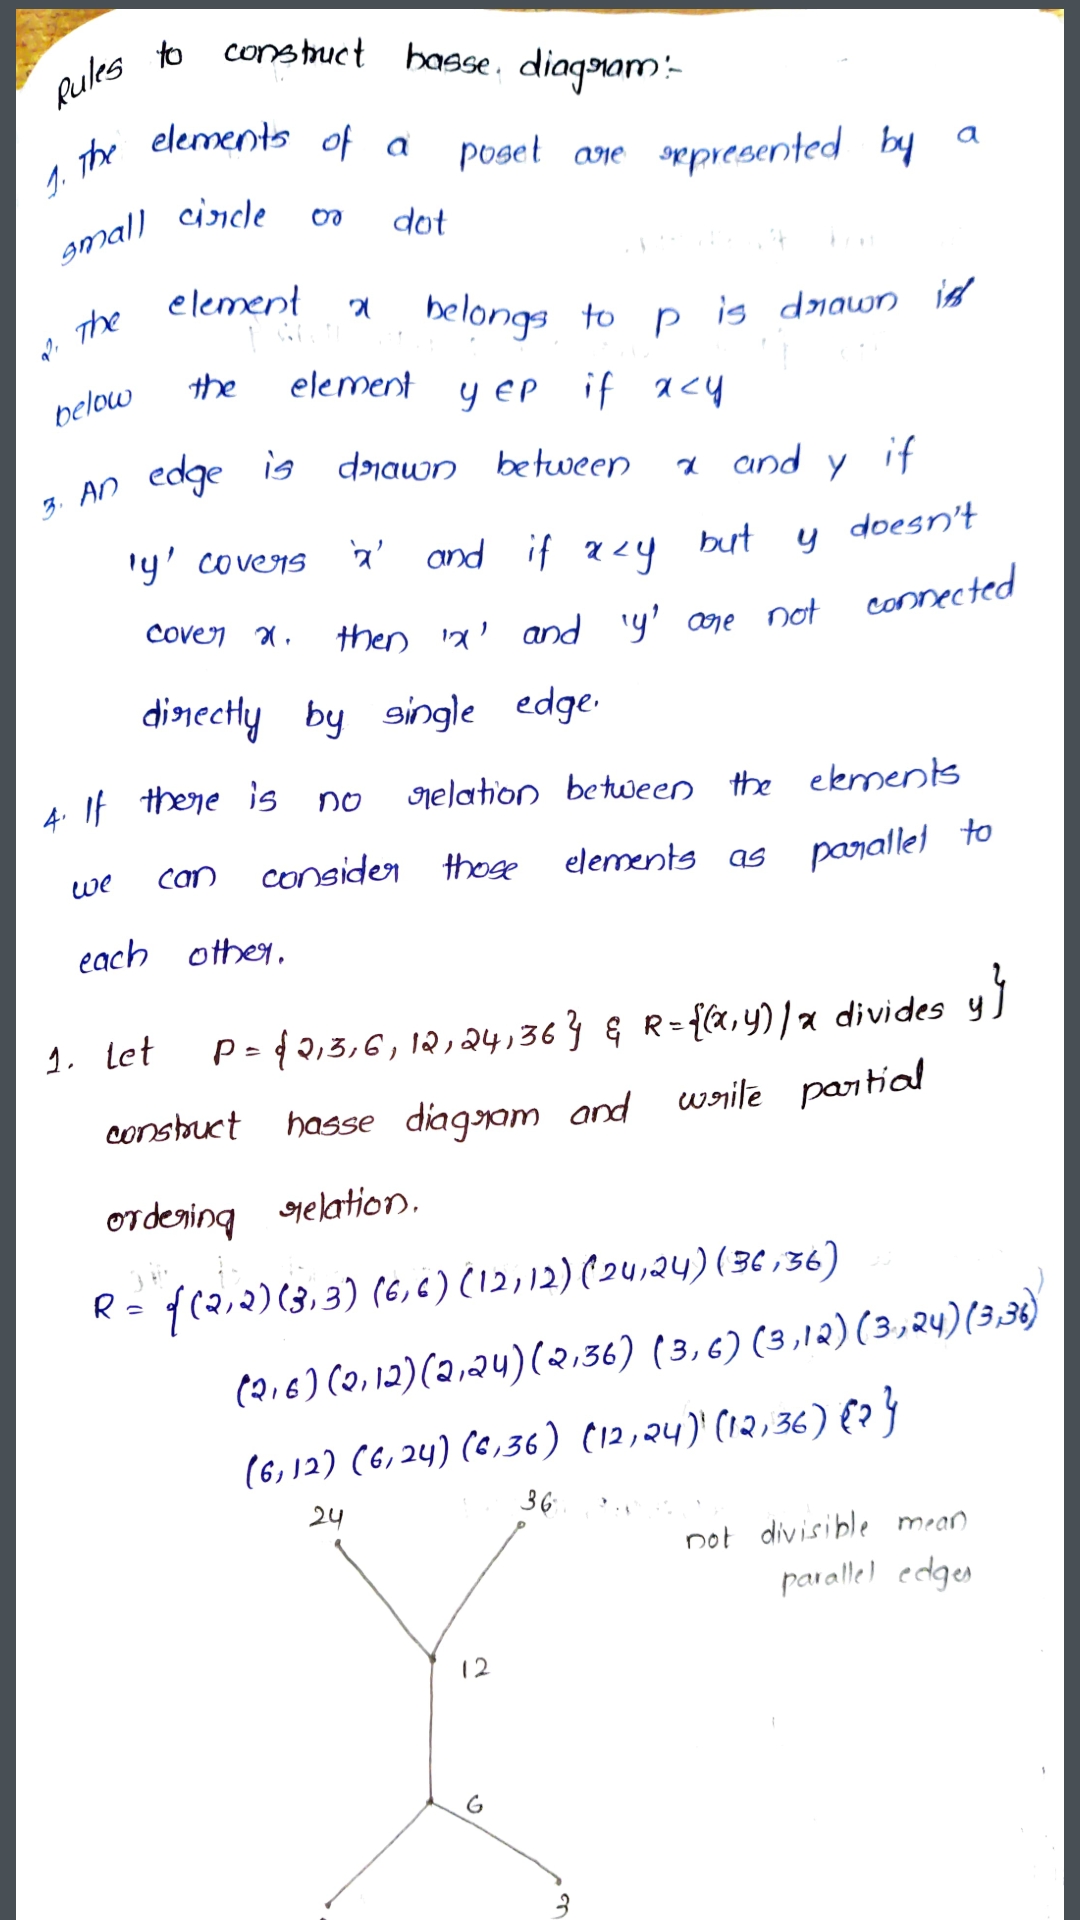 Rules to construct hasse. diagram:-
1. The elements of a poset are represented by a
small circle or dot
2. The element x belongs to p is drawn
below the element y ∈ P if x<y
3. An edge is drawn between x and y if
'y' covers 'x' and if x<y but y doesn't
cover x. then 'x' and 'y' are not connected
directly by single edge.
4. If there is no relation between the elements
we can consider those elements as parallel to
each other.
1. Let P = {2,3,6,12,24,36} & R={(x,y)/x divides y}
construct hasse diagram and write partial
ordering relation.
R = {(2,2)(3,3) (6,6) (12,12) (24,24) (36,36)
(2,6) (2,12) (2,24) (2,36) (3,6) (3,12) (3,24) (3,36)
(6,12) (6,24) (6,36) (12,24) (12,36) }
24 36
not divisible mean
parallel edges
12
6
3